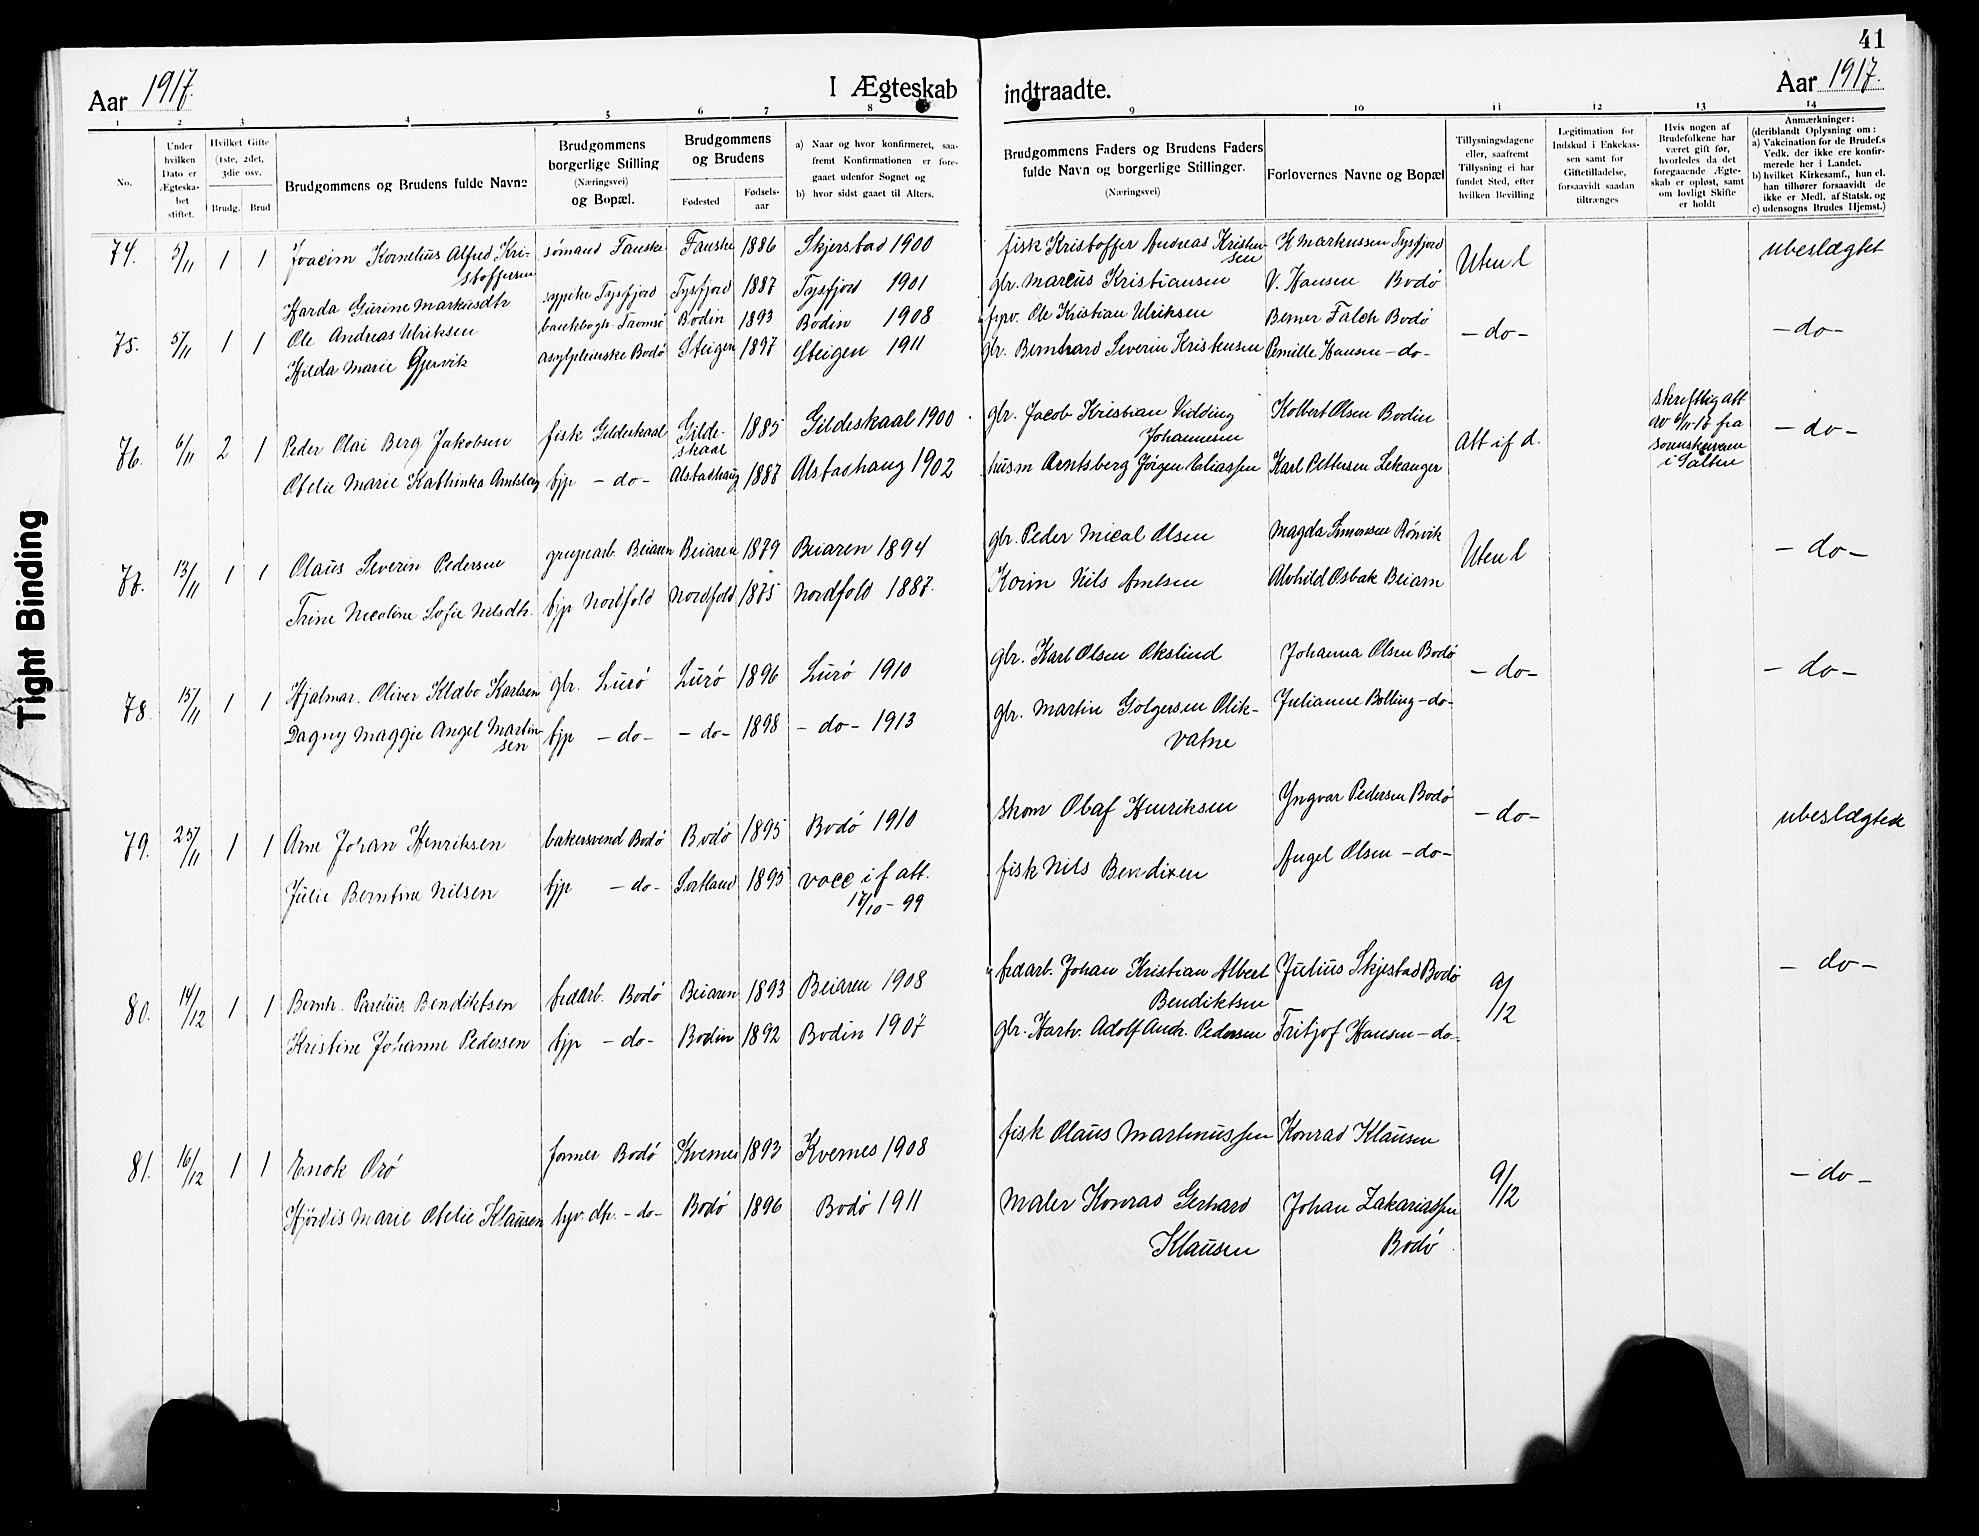 41
Aar 1917.
I Ægteskab
indtraadte.
Aar 1917.
1 2 3 4 5 6 7 8 9 10 11 12 13 14
No.
Under hvilken Dato er Ægteskabet stiftet.
Hvilket Gifte (1ste, 2det, 3die osv.
Brudg. Brud
Brudgommens og Brudens fulde Navne
Brudgommens borgerlige Stilling (Næringsvei) og Bopæl.
Brudgommens og Brudens
Fødested
Fødsels-aar
a) Naar og hvor konfirmeret, saa-
fremt Konfirmationen er fore-
gaaet udenfor Sognet og
b) hvor sidst gaaet til Alters.
Brudgommens Faders og Brudens Faders
fulde Navn og borgerlige Stillinger.
(Næringsvei)
Forlovernes Navne og Bopæl
Tillysningsdagene
eller, saafremt
Tillysning ei har
fundet Sted, efter
hvilken Bevilling
Legitimation for
Indskud i Enkekas-
sen samt for
Giftetilladelse,
forsaavidt saadan
tiltrænges
Hvis nogen af
Brudefolkene har
været gift før,
hvorledes da det
foregaaende Ægte-
skab er opløst, samt
om lovligt Skifte
er holdt
Anmærkninger:
(deriblandt Oplysning om:
a) Vakcination for de Brudef.s
Vedk. der ikke ere konfir-
merede her i Landet.
b) hvilket Kirkesamf., hun el.
han tilhører forsaavidt de
ikke er Medl. af Statsk. og
c) udensogns Brudes Hjemst.)
74. 5/11 1 1 Joacim Kornelius Alfred Kri-
stoffersen sømand Fauske Fauske 1886 Skjerstad 1900 fisk Kristoffer Andreas Kristen-
sen K Markussen Tysfjord Uten l ubeslægtet
Harda Gurine Markusdtr sypike Tysfjord Tysfjord 1887 Tysfjord 1901 gbr. Marcus Kristiansen V. Hansen Bodø
75. 5/11 1 1 Ole Andreas Ulriksen Tromsø Bodin 1893 Bodin 1908 fyrv. Ole Kristian Ulriksen Berner Falch Bodø – do – – do –
Hilda Marie Gjervik Bodø Steigen 1897 Steigen 1911 gbr. Bernhard Severin Kristensen Pernille Hansen – do –
76. 6/11 2 1 Peder Olai Berg Jakobsen fisk Gildeskaal Gilde-
skaal 1885 Gildeskaal 1900 gbr. Jacob Kristian Vidding
Johannesen Kolbert Olsen Bodin Att if d. skriftlig att
av 6/11-17 fra
sorenskriveren
i Salten – do –
Ofelie Marie Kathinka Arntsberg tjp – do – Alstadhaug 1887 Alstadhaug 1902 husm Arntsberg Jørgen Eliassen Karl Pettersen Lekanger
77. 13/11 1 1 Olaus Severin Pedersen grupearb. Beiaren Beiaren 1879 Beiaren 1894 gbr. Peder Mical Olsen Magda Simonsen Rønvik Uten l – do –
Trine Nicoline Sofie Nilsdtr. tjp Nordfold Nordfold 1875 Nordfold 1887. Nils Arntsen Alvhild Osbak Beiarn
78. 15/11 1 1 Hjalmar. Oliver Klæbo Karlsen gbr. Lurø Lurø 1896 Lurø 1910 gbr. Karl Olsen Johanna Olsen Bodø – do – – do –
Dagny Maggie Angel Martin-
sen tjp – do – – do – 1898 – do – 1913 gbr. Martin Solgersen Olik-
vatne Julianne Bolling – do –
79. 25/11 1 1 Arne Johan Henriksen bakersvend Bodø Bodø 1895 Bodø 1910 skom Olaf Henriksen Yngvar Pedersen Bodø – do – ubeslægtede
Julie Berntine Nilsen tjp – do – Sortland 1895 vacc if att.
17/10 – 99 fisk Nils Bendixen Angel Olsen – do –
80. 14/12 1 1 Bernh. Parelius Bendiktsen Bodø Beiaren 1893 Beiaren 1908 Johan Kristian Albert
Bendiktsen Julius Skjestad Bodø 9/12 – do –
Kristine Johanne Pedersen tjp – do – Bodin 1892 Bodin 1907 gbr. Hartv. Adolf Andr. Pedersen Fritjof Hansen – do –
81. 16/12 1 1 Enok Orø former Bodø Kvernes 1893 Kvernes 1908 fisk Olaus Martinussen Konrad Klausen 9/12 – do –
Hjørdis Marie Ofelie Klausen – do – Bodø 1896 Bodø 1911 maler Konrad Gerhard
Klausen Johan Zakariassen
Bodø
Tight Binding